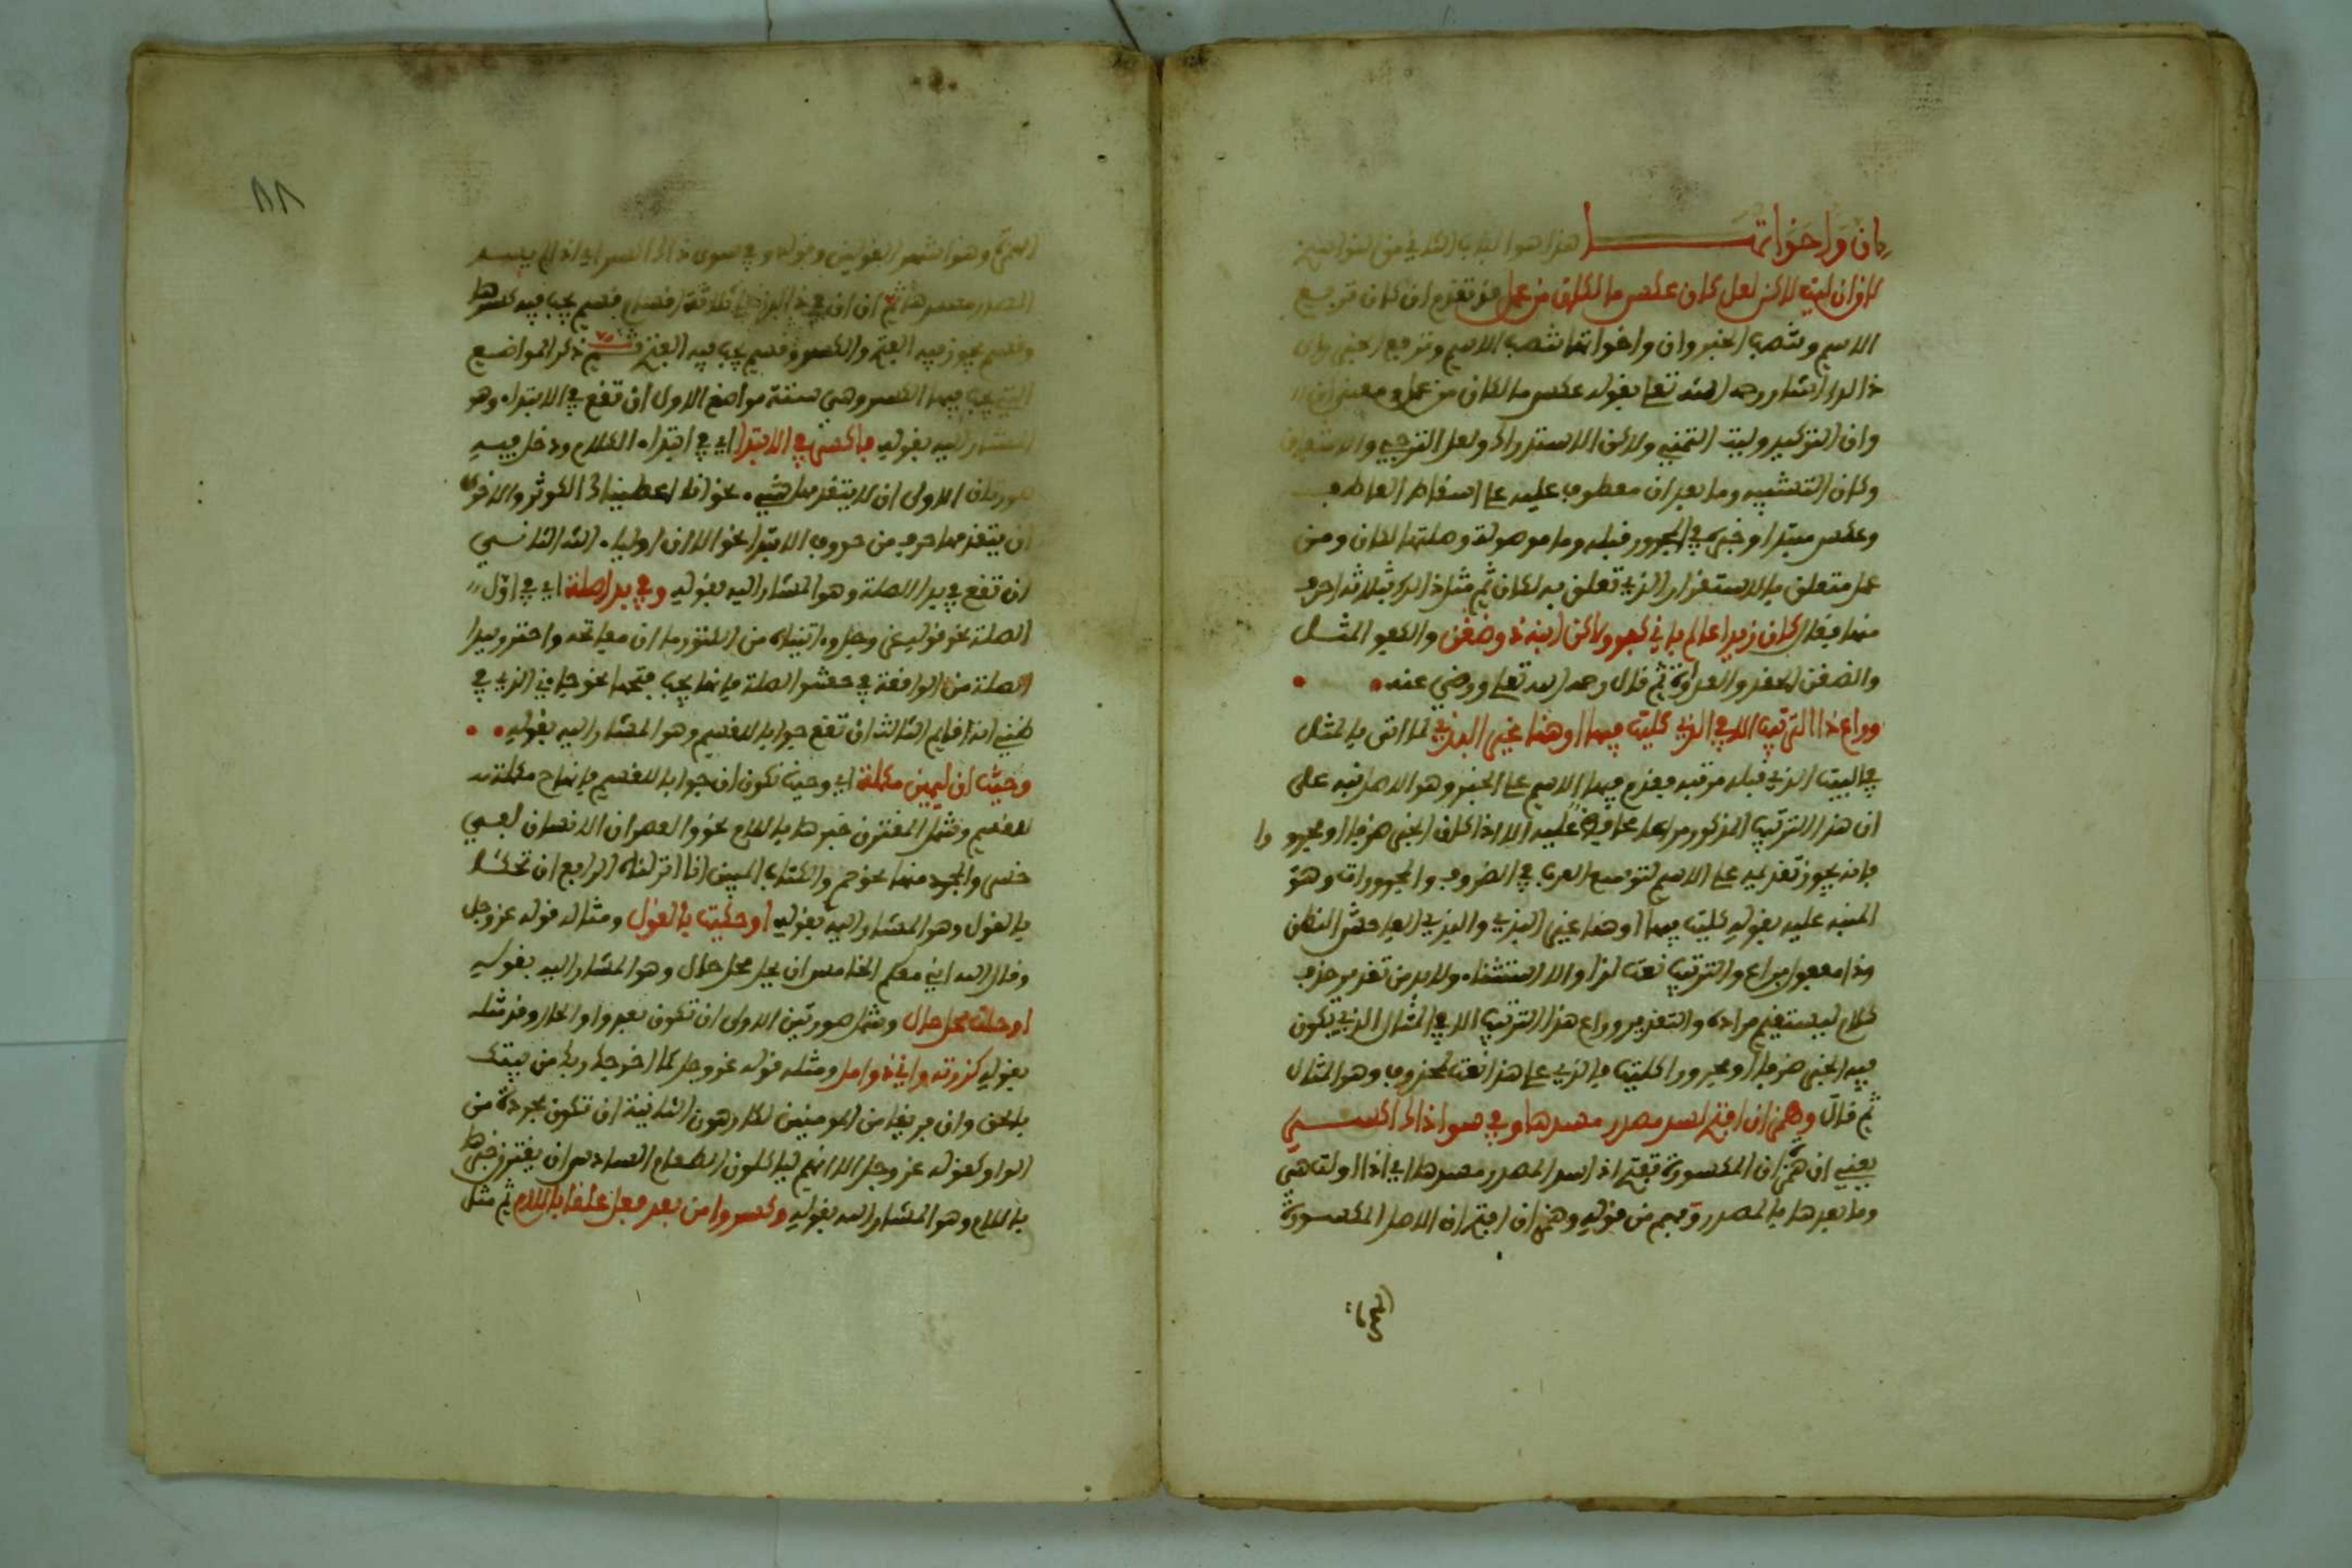 إن وأخواتها هذا هو الباب الثاني من النواسخ
لإن أن ليت لاكن لعل كأن عكس ما لكان من عمل قد تقدم ان كان ترفع
الاسم وتنصب الخبر وان واخواتها تنصب الاسم وترفع الخبر والى
ذالك اشار رحمه الله تعلى بقوله عكس ما لكان من عمل ومعنى ان
وان التوكيد وليت التمني ولاكن الاستدراك ولعل الترجي والاشفاق
وكان التشبيه وما بعد ان معطوف عليه على اسقاط العاطف
وعكس مبتدا وخبره في المجرور قبله وما موصولة وصلتها لكان ومن
عمل متعلق بالاستقرار الذي تعلق به لكان ثم مثل ذالك بثلاثة احرف
منها فقال كإن زيدا عالم بأني كفو ولاكن ابنه ذو ضغن والكفو المثل
والضغن الحقد والعداوة ثم قال رحمه الله تعلى ورضي عنه
وراع ذا الترتيب الا في الذي كليت فيها او هنا غير البذي لما اتى بالمثل
في البيت الذي قبله مرتبة فقدم فيها الاسم على الخبر وهو الاصل نبه على
ان هذا الترتيب المذكور مراعا محافظ عليه الا اذا كان الخبر ظرفا او مجرورا
فانه يجوز تقديمه على الاسم لتوسع العرب في الظروف والمجرورات وهو
المنبه عليه بقوله كليت فيها او هنا غير البذي والبذي الفاحش النطق
وذا مفعول براع والترتيب نعت لذا والا استثناء ولابد من تقدير حذف
كلام ليستقيم مراده والتقدير وراع هذا الترتيب الا في المثال الذي يكون
فيه الخبر ظرفا او مجرورا كليت فالذي على هذا نعت لمحذوف وهو المثال
ثم قال وهمز ان افتح لسد مصدر مسدها وفي سوا ذاك اكسر
يعني ان همزة ان المكسورة تفتح اذا سد المصدر مسدها اي اذا اولت هي
وما بعدها بالمصدر وفهم من قوله وهمز ان افتح ان الاصل المكسورة
الهمزة وهو اشهر القولين وقوله وفي سوى ذاك اكسر اي اذا لم يسد
المصدر مسدها ثم ان ان في ذالك على ثلاثة اقسام قسم يجب فيه كسرها
وقسم يجوز فيه الفتح والكسر وقسم يجب فيه الفتح ثم ذكر المواضع
التي يجب فيها الكسر وهي ستة مواضع الاول ان تقع في الابتداء وهو
المشار اليه بقوله فاكسر في الابتدا اي في ابتداء الكلام ودخل فيه
صورتان الاولى ان لا يتقدمها شيء نحو انا اعطيناك الكوثر والاخرى
ان يتقدمها حرف من حروف الابتدا نحو الا ان اولياء الله الثاني
ان تقع في بدء الصلة وهو المشار اليه بقوله وفي بدء صلة اي في اول
الصلة نحو قوله عز وجل وءاتيناه من الكنوز ما ان مفاتحه واحترز ببدا
الصلة من الواقعة في حشو الصلة فانها يجب فتحها نحو جاءني الذي في
ظني انه قايم الثالث ان تقع جوابا للقسم وهو المشار اليه بقوله
وحيث ان ليمين مكملة اي وحيث تكون ان جوابا للقسم فانها مكملة
للقسم وشمل المقترن خبرها باللام نحو والعصر ان الانسان لفي
خسر والمجرد منها نحو حم والكتاب المبين انا انزلناه الرابع ان تحكى
بالقول وهو المشار اليه بقوله او حكيت بالقول ومثاله قوله عز وجل
وقال الله اني معكم الخامس ان تحل محل حال وهو المشار اليه بقوله
او حلت محل حال وشمل صورتين الاولى ان تكون بعد واو الحال وقد مثله
بقوله كزرته واني ذو امل ومثله قوله عز وجل كما اخرجك ربك من بيتك
بالحق وان فريقا من المومنين لكارهون الثانية ان تكون مجردة من
الواو كقوله عز وجل الا انهم لياكلون الطعام السادس ان يقترن خبرها
باللام وهو المشار اليه بقوله وكسروا من بعد فعل علقا باللام ثم مثل